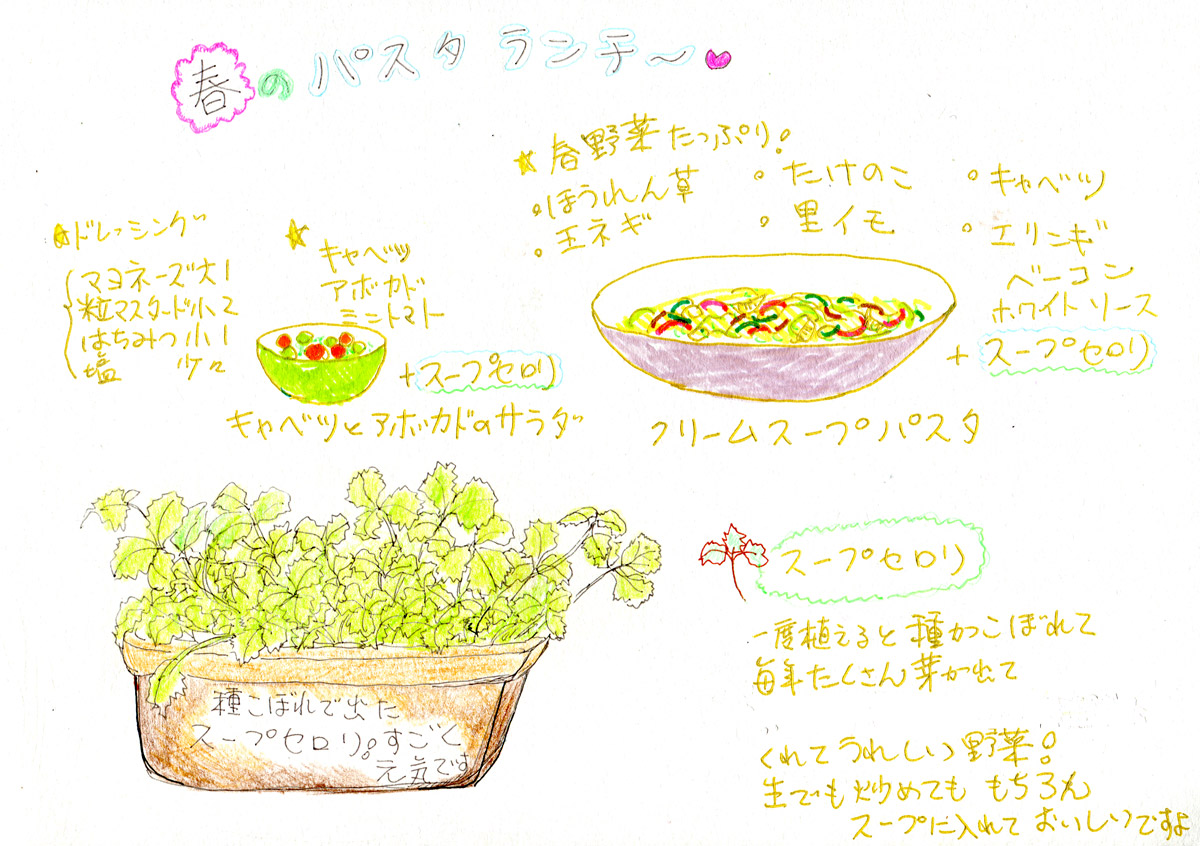 春のパスタランチ～
★ドレッシング
マヨネーズ大1
粒マスタード小2
はちみつ小1
塩 少々
★キャベツ
アボカド
ミニトマト
+スープセロリ
キャベツとアボカドのサラダ
★春野菜たっぷり!
・ほうれん草
・玉ネギ
・たけのこ
・里イモ
・キャベツ
・エリンギ
ベーコン
ホワイトソース
+スープセロリ
クリームスープパスタ
種こぼれで出た
スープセロリ。すごく
元気です
スープセロリ
一度植えると種がこぼれて
毎年たくさん芽が出て
くれてうれしい野菜!
生でも炒めても もちろん
スープに入れて おいしいですよ